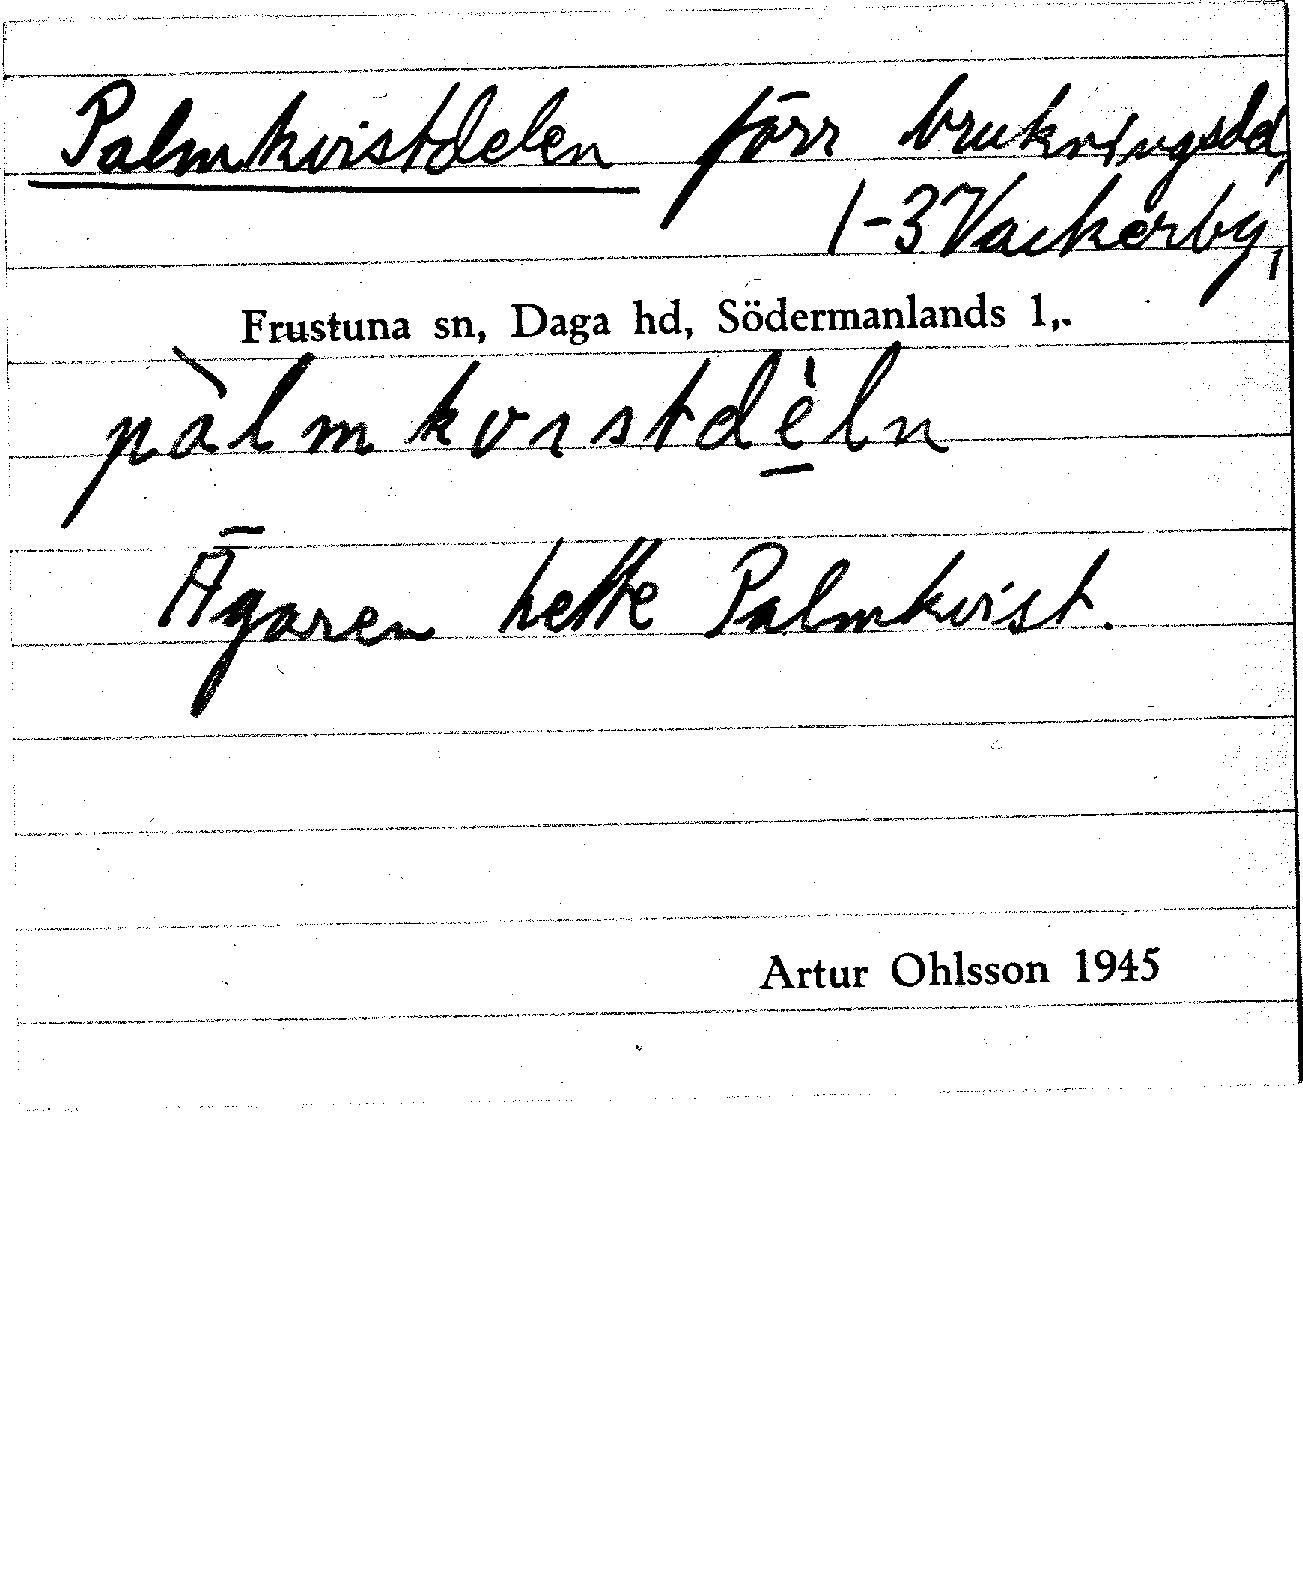 Palmkvistdelen förr brukningsdel,
1-3 Vackerby,
Frustuna sn, Daga hd, Södermanlands l,.
pàlmkvɪstdèln
Ägaren hette Palmkvist.
Artur Ohlsson 1945